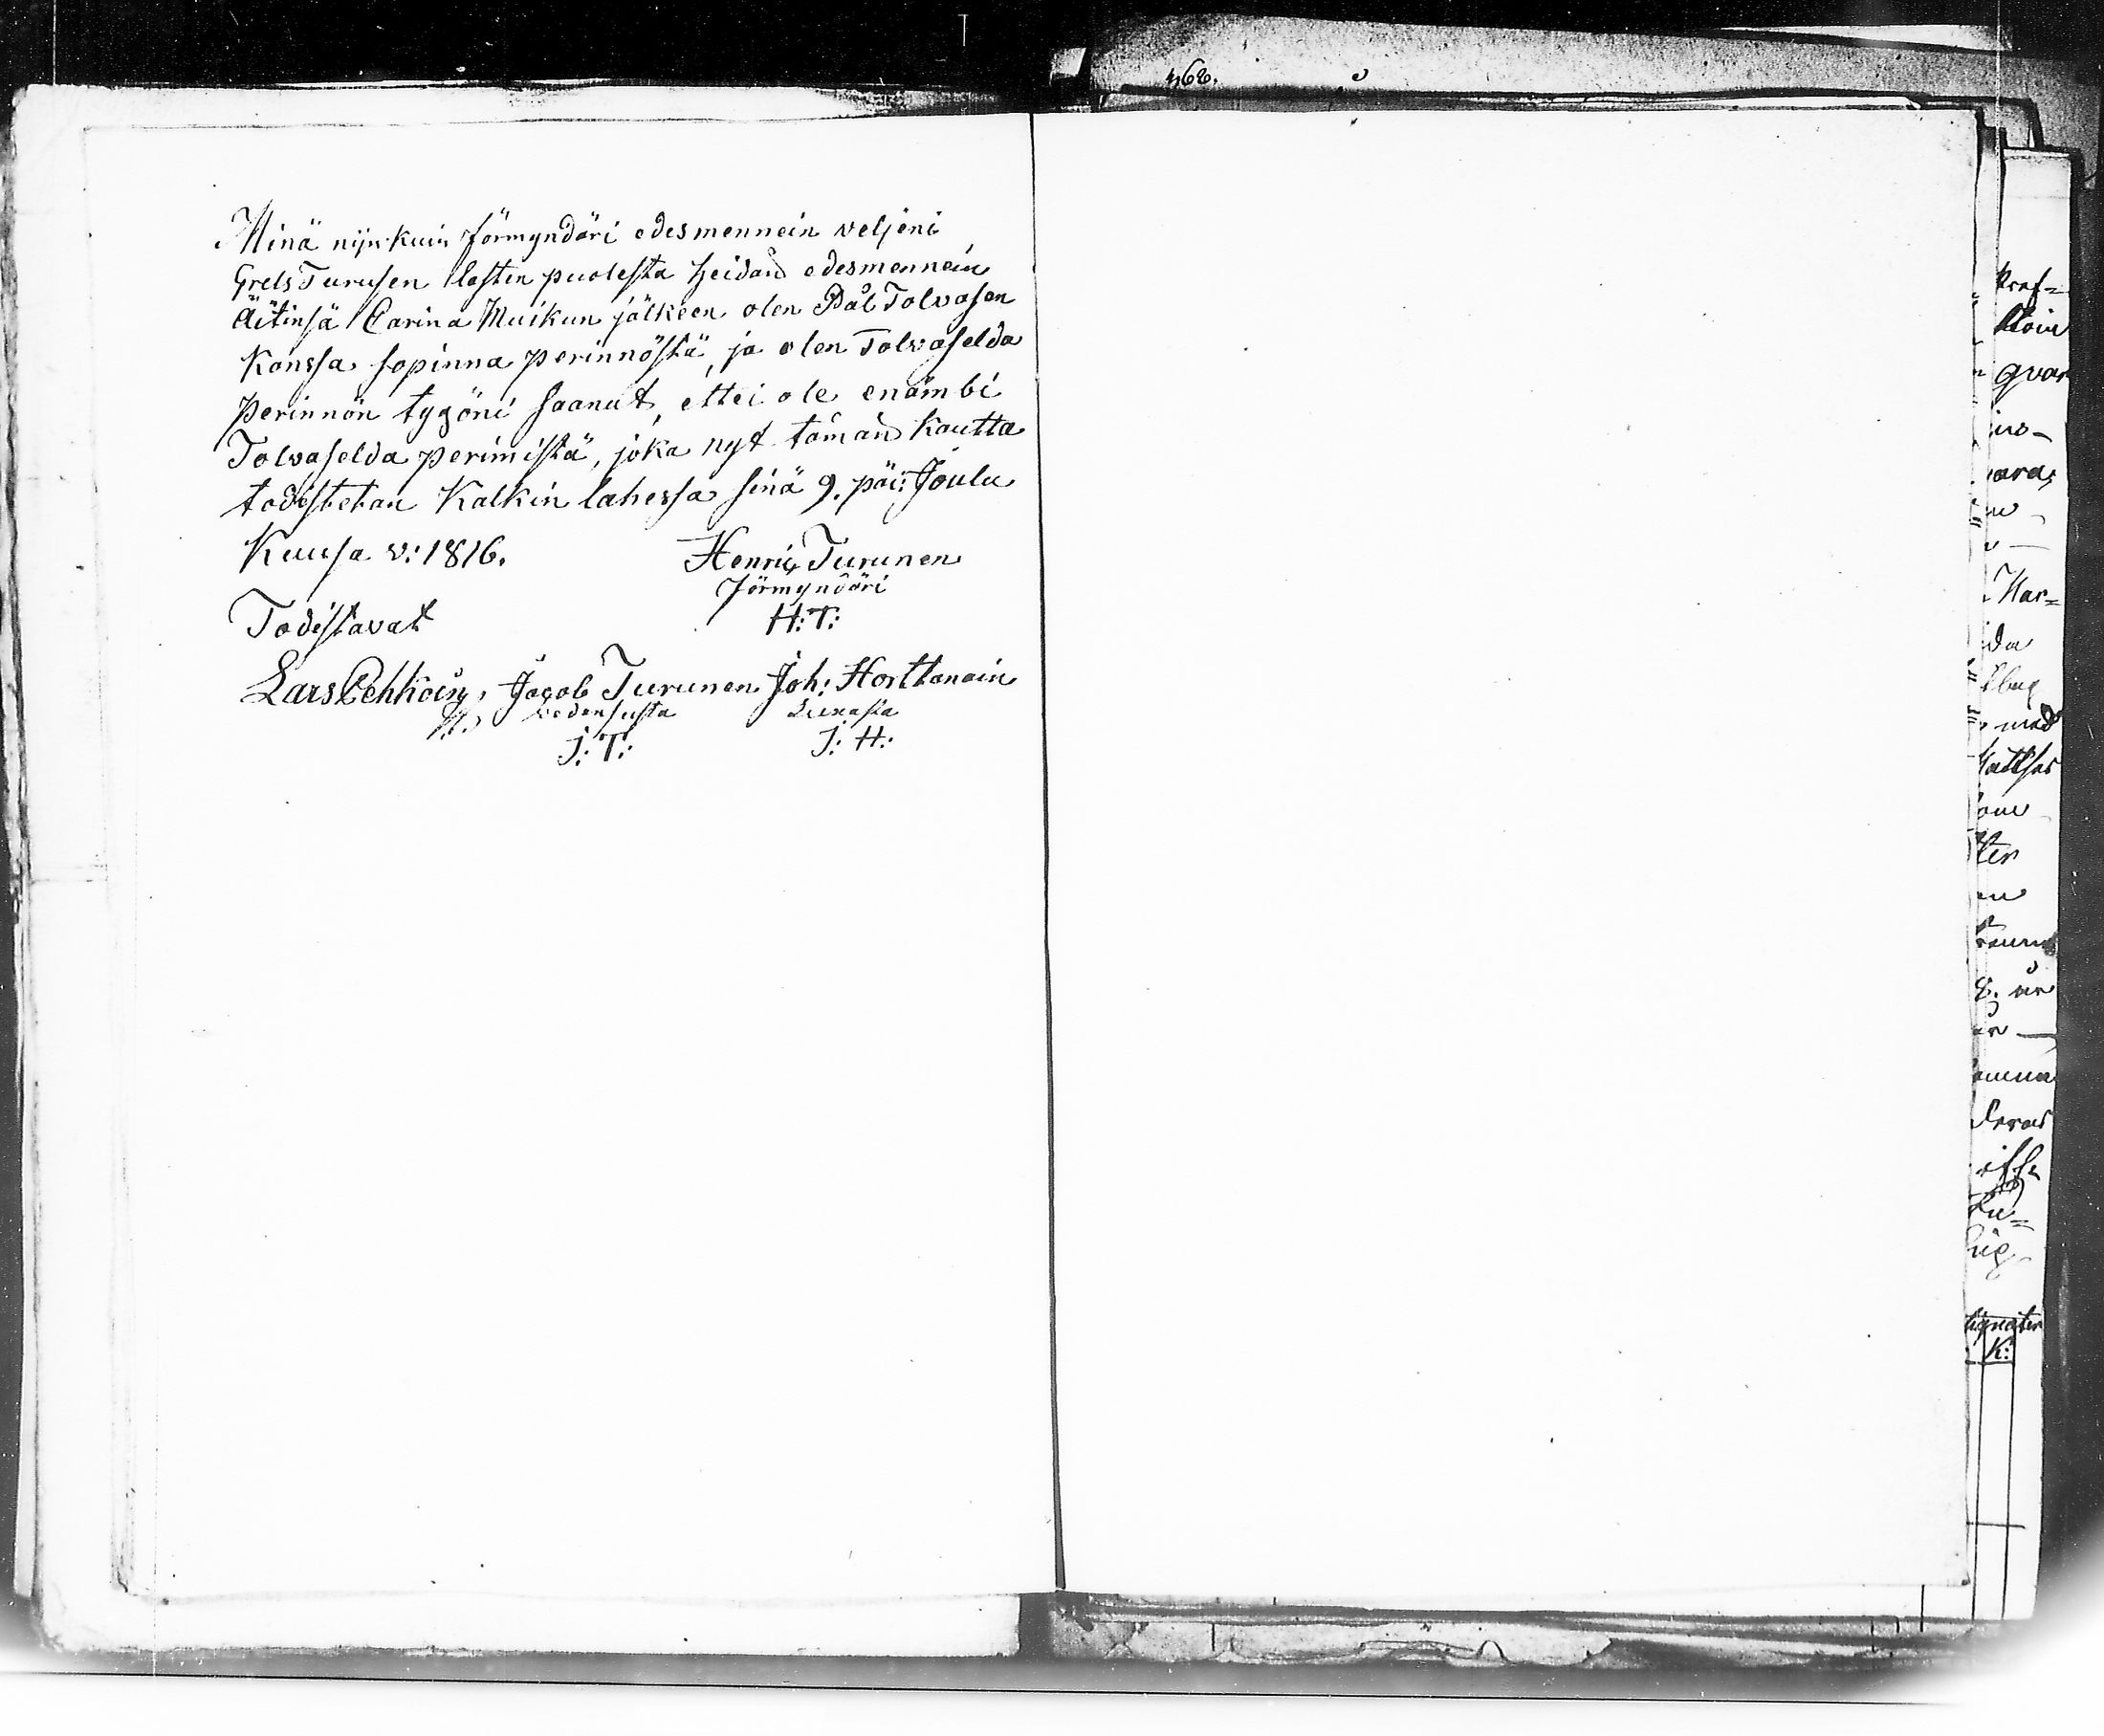 468.
Minä nijnkuin förmyndäri edesmennein veljeni
Grels Turusen lasten puolesta heidän edesmennein
äitinsä Carina Muikun jälkeen olen Pål Tolvasen
Kanssa sopinna perinnöstä, ja olen Tolvaselda
perinnön tygöni saanut, ettei ole enämbi
Tolvaselda perimistä, joka nyt tämän kautta
todistetan Kalkin lahessa sinä 9. päi: Joulu
Kuusa v: 1816.
Henric Turunen
förmyndäri
H: T:
Todistavat
Lars Pehkoin, Jacob Turunen Joh: Horttanain
J: T: J: H:
gvar
Mar=
da
med
ter
K: